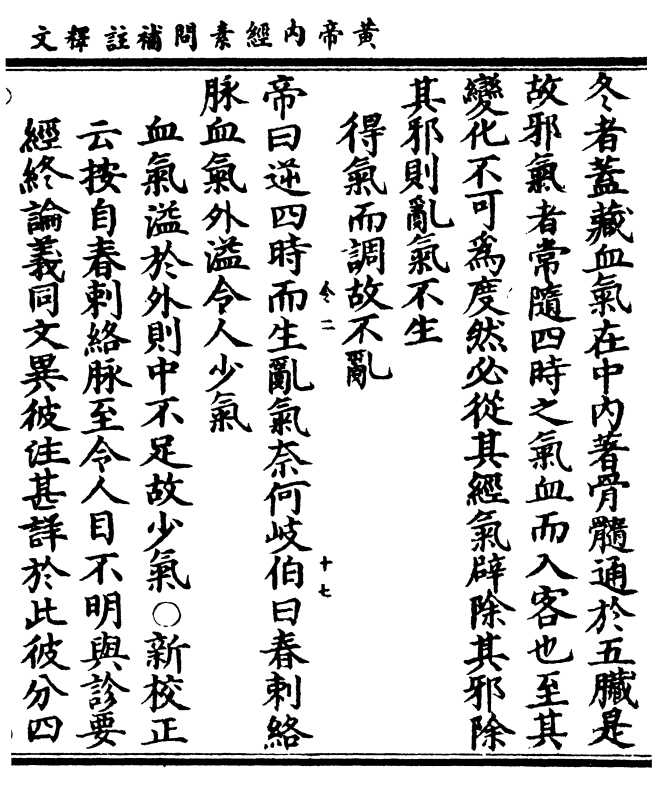 黃帝內經素問補註釋文
冬者蓋藏血氣在中內著骨髓通於五臟是
故邪氣者常隨四時之氣血而入客也至其
變化不可爲度然必從其經氣辟除其邪除
其邪則亂氣不生
得氣而調故不亂
帝曰逆四時而生亂氣奈何岐伯曰春刺絡
令二
十七
脉血氣外溢令人少氣
血氣溢於外則中不足故少氣○新校正
云按自春刺絡脉至令人目不明與診要
經終論義同文異彼注甚詳於此彼分四